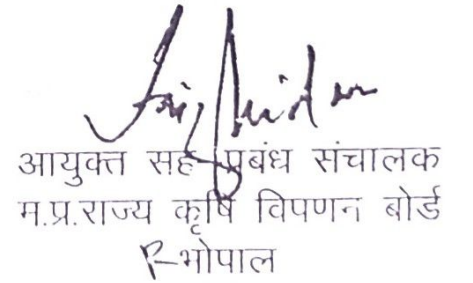 आयुक्त सह प्रबंध संचालक
म.प्र.राज्य कृषि विपणन बोर्ड
भोपाल